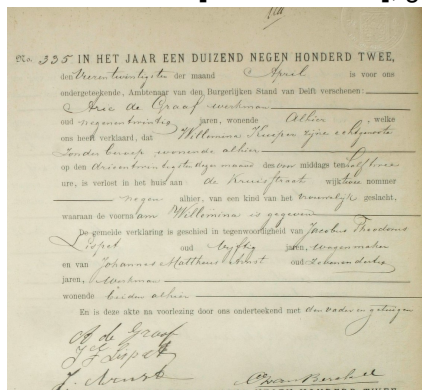 No. 335 IN HET JAAR EEN DUIZEND NEGEN HONDERD TWEE,
den Vierentwintigsten der maand April is voor ons
ondergeteekende, Ambtenaar van den Burgerlijken Stand van Delft verschenen:
Arie de Graaf werkman
oud negenentwintig jaren, wonende Alhier, welke
ons heeft verklaard, dat Willemina Kuyper zijne echtgenoote
zonder beroep wonende alhier
op den drieentwintigsten dezer maand des voor middags ten half twee
ure, is verlost in het huis aan de Kruisstraat wijk twee nummer
negen alhier, van een kind van het vrouwelijk geslacht,
waaraan de voornaam Willemina is gegeven
De gemelde verklaring is geschied in tegenwoordigheid van Jacobus Theodorus
Lispet oud vijftig jaren, wagenmaker
en van Johannes Mattheus Arnst oud zevenendertig
jaren, werkman
wonende beiden alhier
En is deze akte na voorlezing door ons onderteekend met den vader en getuigen
A de Graaf
J T Lispet
J. Arnst